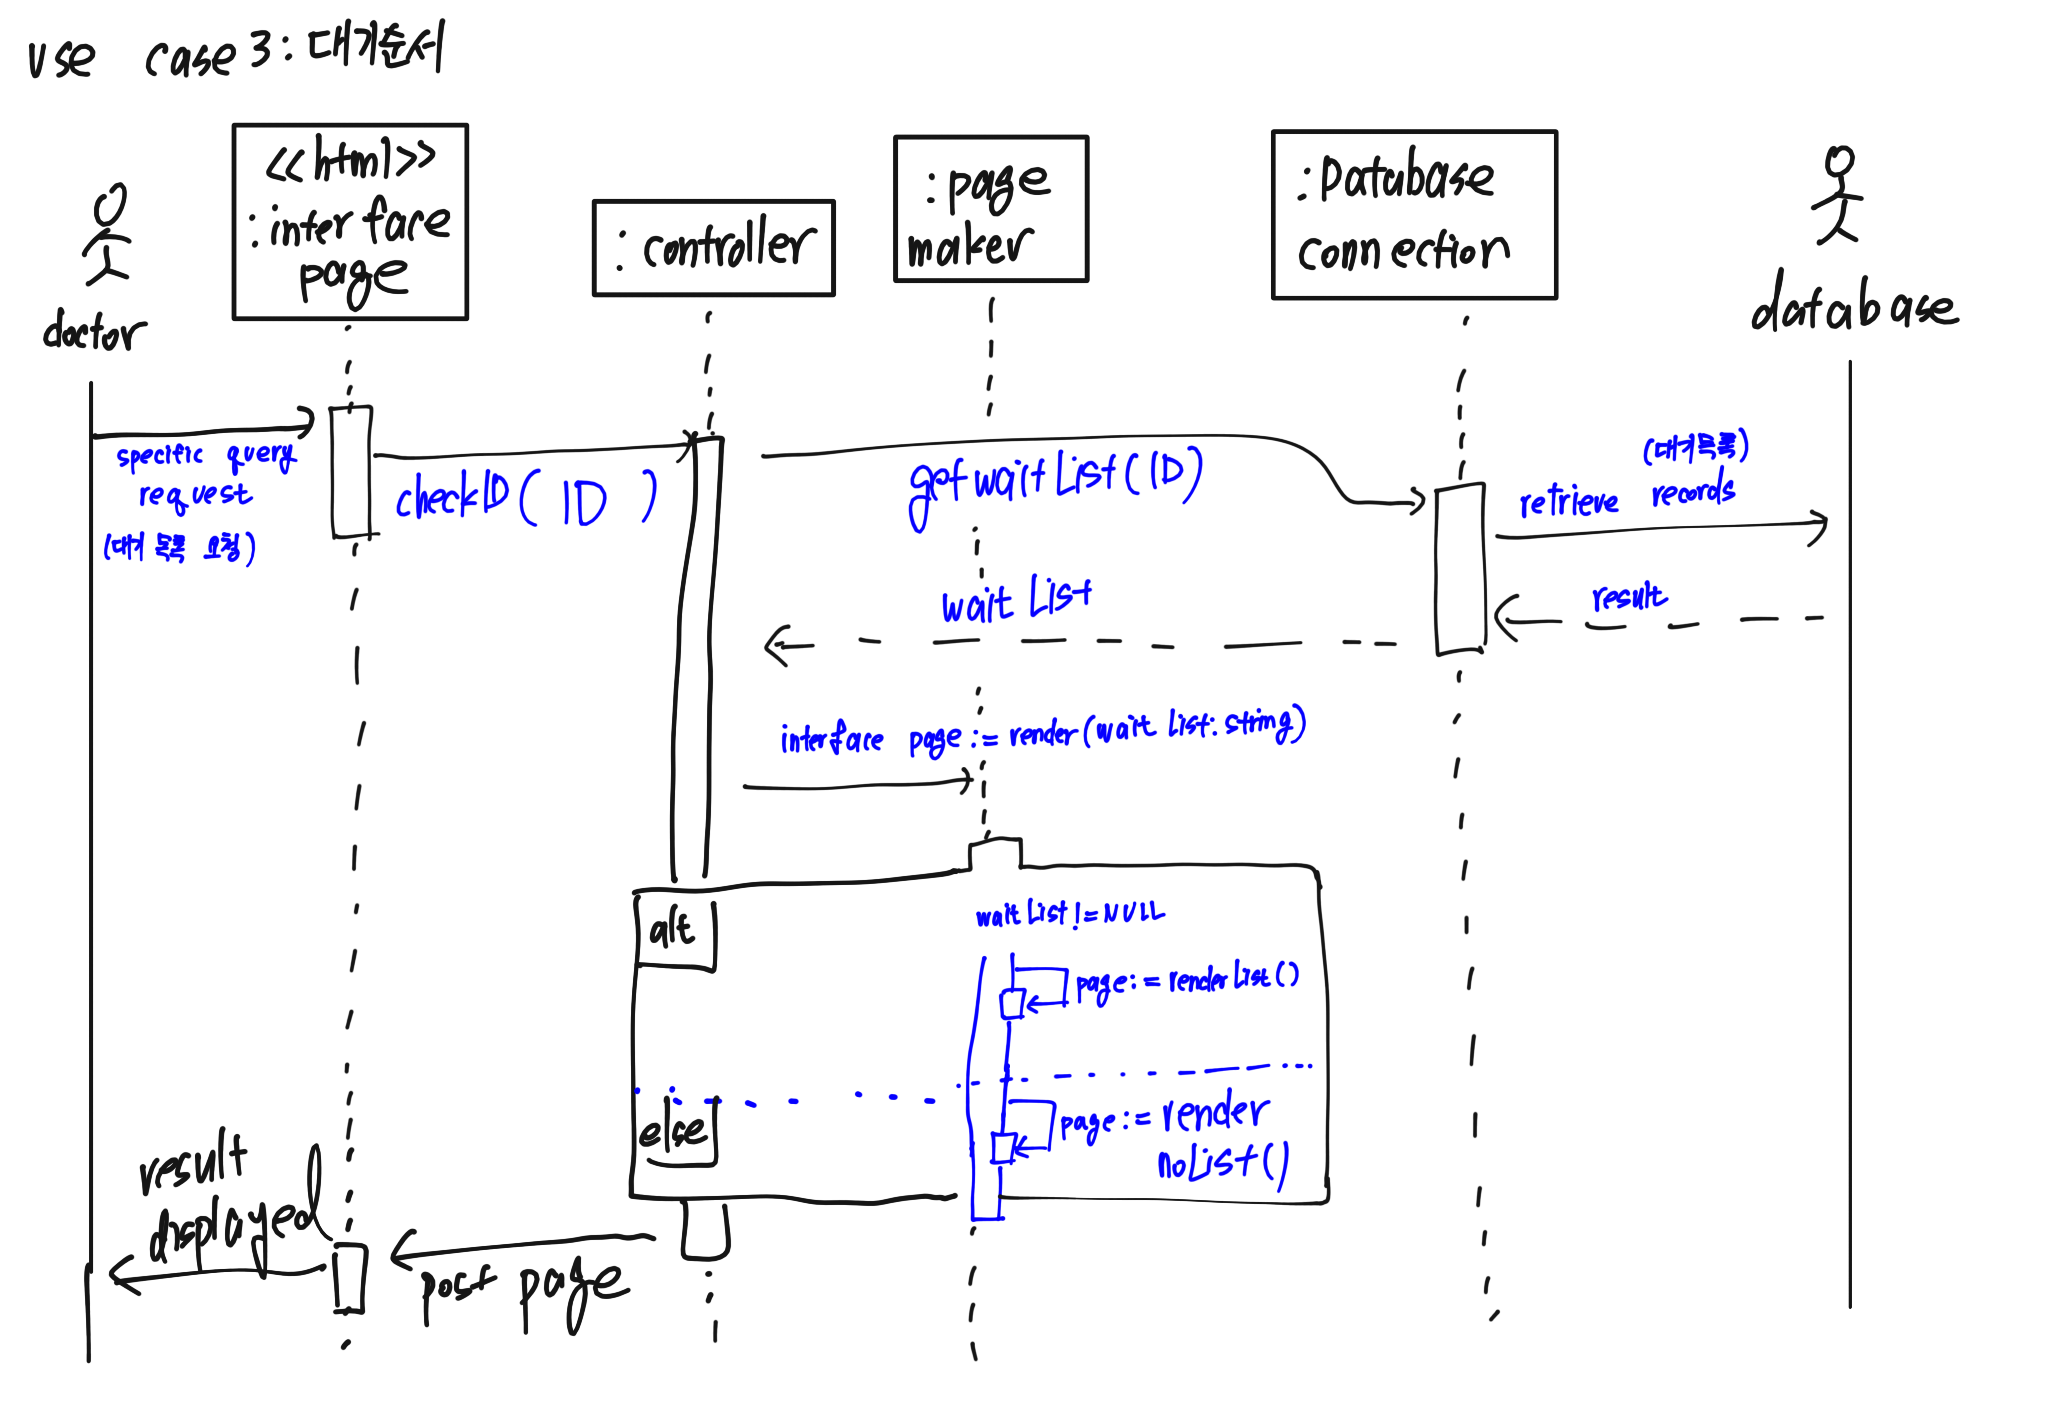 use case 3 : 대기순서
<<html>>
: interface
page
: controller
: page
maker
: Database
connection
doctor
database
specific query
request
(대기 목록 요청)
checkID( ID )
get wait List (ID)
(대기목록)
retrieve records
wait List
result
interface page := render(wait List: string)
alt
wait List != NULL
page := render List ()
else
page := render
noList()
result
displayed
post page